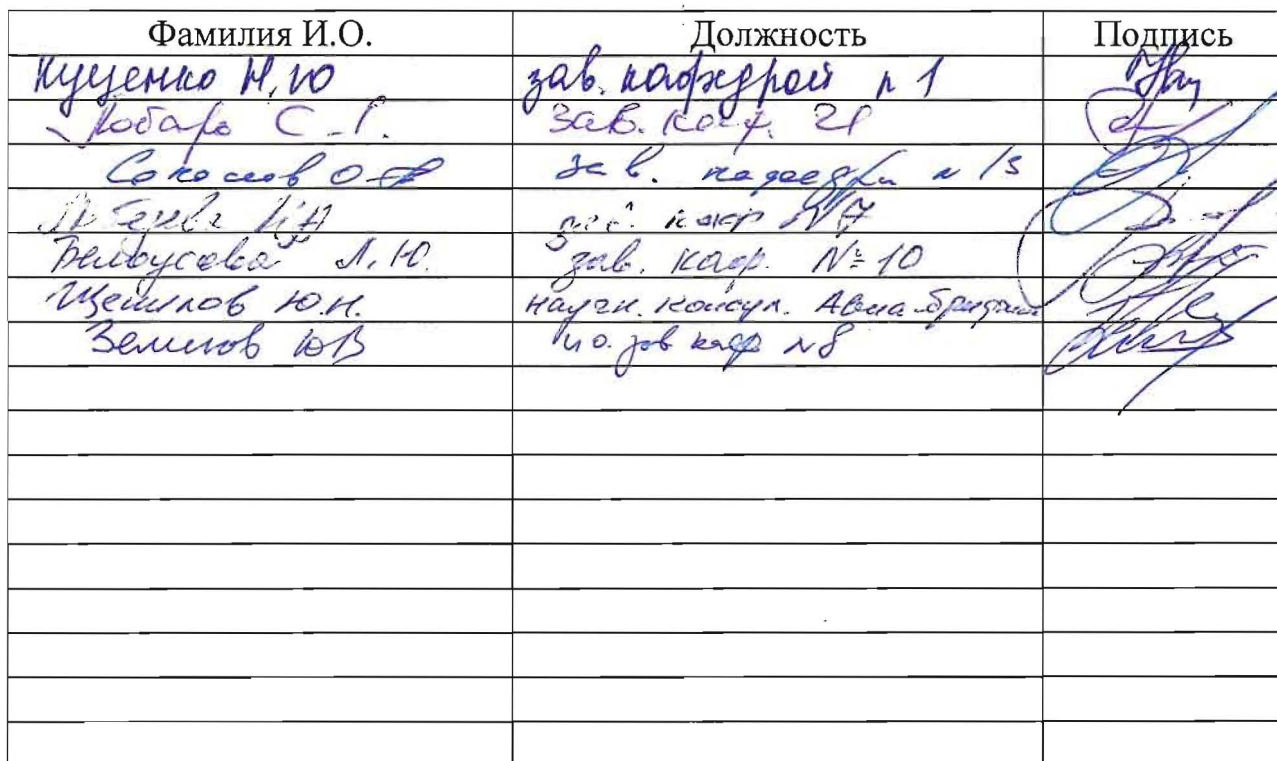 Фамилия И.О. Должность Подпись
Куценко Н.Ю зав. кафедрой n 1
Кобарь С. Г. Зав. каф. 21
Соколов О зав. кафедры n 13
каф N7
Белоусова Л.Ю. зав. каф. № 10
Щепилов Ю.Н. научн. консул.
Земсков ЮВ ио. зав каф n8